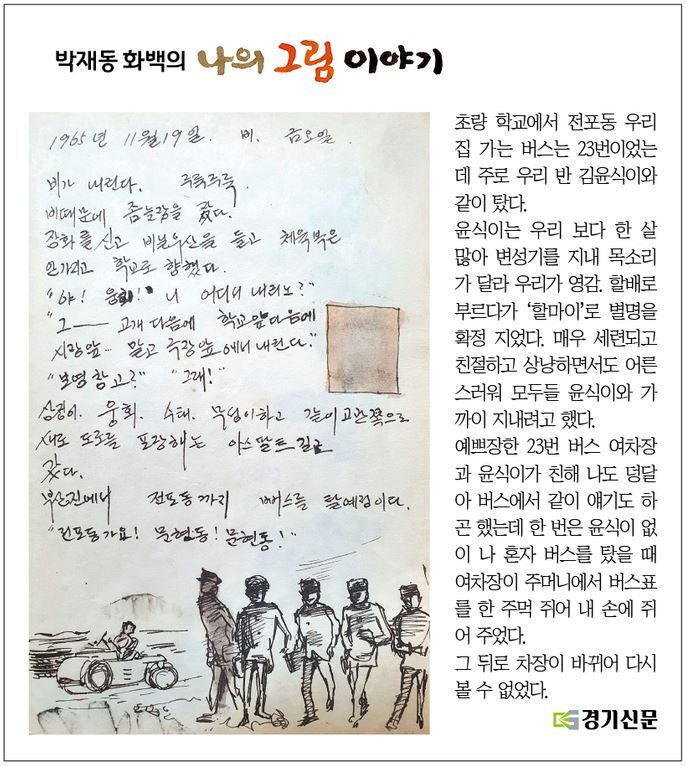 박재동 화백의 나의 그림 이야기
1965년 11월 19일. 비. 금요일.
비가 내린다. 주룩주룩.
비때문에 좀늦잠을 잤다.
장화를 신고 비닐우산을 들고 체육복은
안가지고 학교로 향했다.
"야! 웅희! 니 어디서 내리노?"
"그 ── 고개 다음에 학교앞다음에
시장앞 … 말고 극장앞에서 내린다."
"보영창고?" "그래!"
웅희. 수태. 하고 같이 쪽으로
새로 도로를 포장하는 아스팔트 길로
갔다.
부산진에서 전포동까지 뻐스를 탈예정이다.
"전포동가요! 문현동! 문현동!"
초량 학교에서 전포동 우리
집 가는 버스는 23번이었는
데 주로 우리 반 김윤식이와
같이 탔다.
윤식이는 우리 보다 한 살
많아 변성기를 지내 목소리
가 달라 우리가 영감, 할배로
부르다가 '할마이'로 별명을
확정 지었다. 매우 세련되고
친절하고 상냥하면서도 어른
스러워 모두들 윤식이와 가
까이 지내려고 했다.
예쁘장한 23번 버스 여차장
과 윤식이가 친해 나도 덩달
아 버스에서 같이 얘기도 하
곤 했는데 한 번은 윤식이 없
이 나 혼자 버스를 탔을 때
여차장이 주머니에서 버스표
를 한 주먹 쥐어 내 손에 쥐
어 주었다.
그 뒤로 차장이 바뀌어 다시
볼 수 없었다.
경기신문